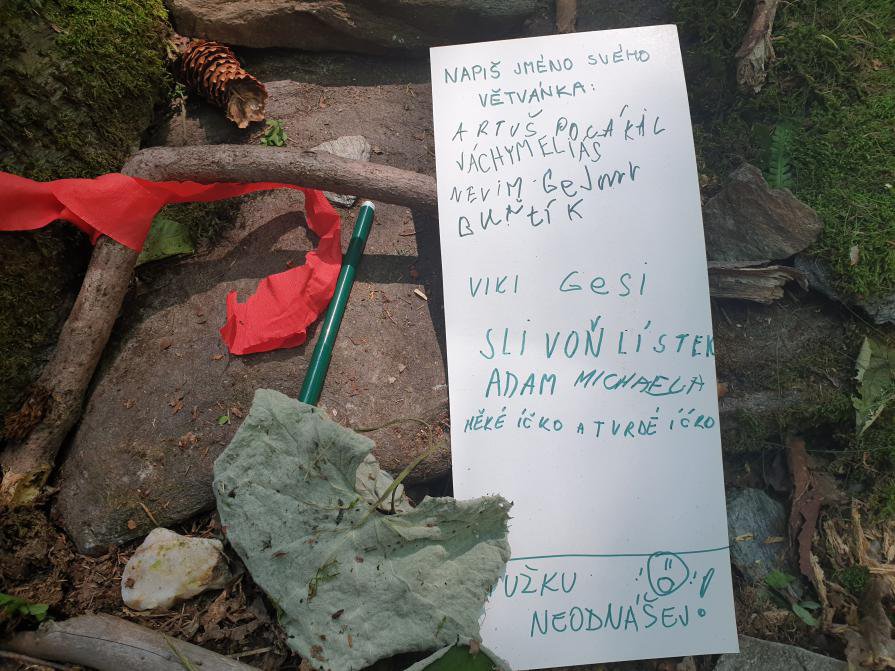 NAPIŠ JMÉNO SVÉHO
VĚTVÁNKA:
ARTUŠ POCÁKÁL
VÁCHYM ELIAS
NEVIM
BUŘTÍK
VIKI GeSI
SLIVOŇ LÍSTEK
ADAM MICHAELA
MĚKÉ ÍČKO A TVRDÉ ÍČRO
UŽKU
NEODNÁŠEJ!